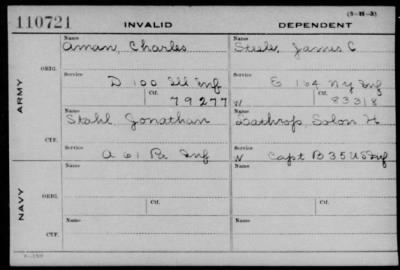 (3-H-3)
110721 INVALID DEPENDENT
Name Name
Aman, Charles Steele, James C
ORIG. Service Service
D 100 Ill Inf E 164 NY Inf
ARMY Ctf. Ctf.
79277 W 83318
Name Name
Stahl, Jonathan Lathrop, Solon H
CTF. Service Service
A 61 Pa Inf W Capt B 35 US Inf
Name Name
NAVY ORIG.
Ctf. Ctf.
Name Name
CTF.